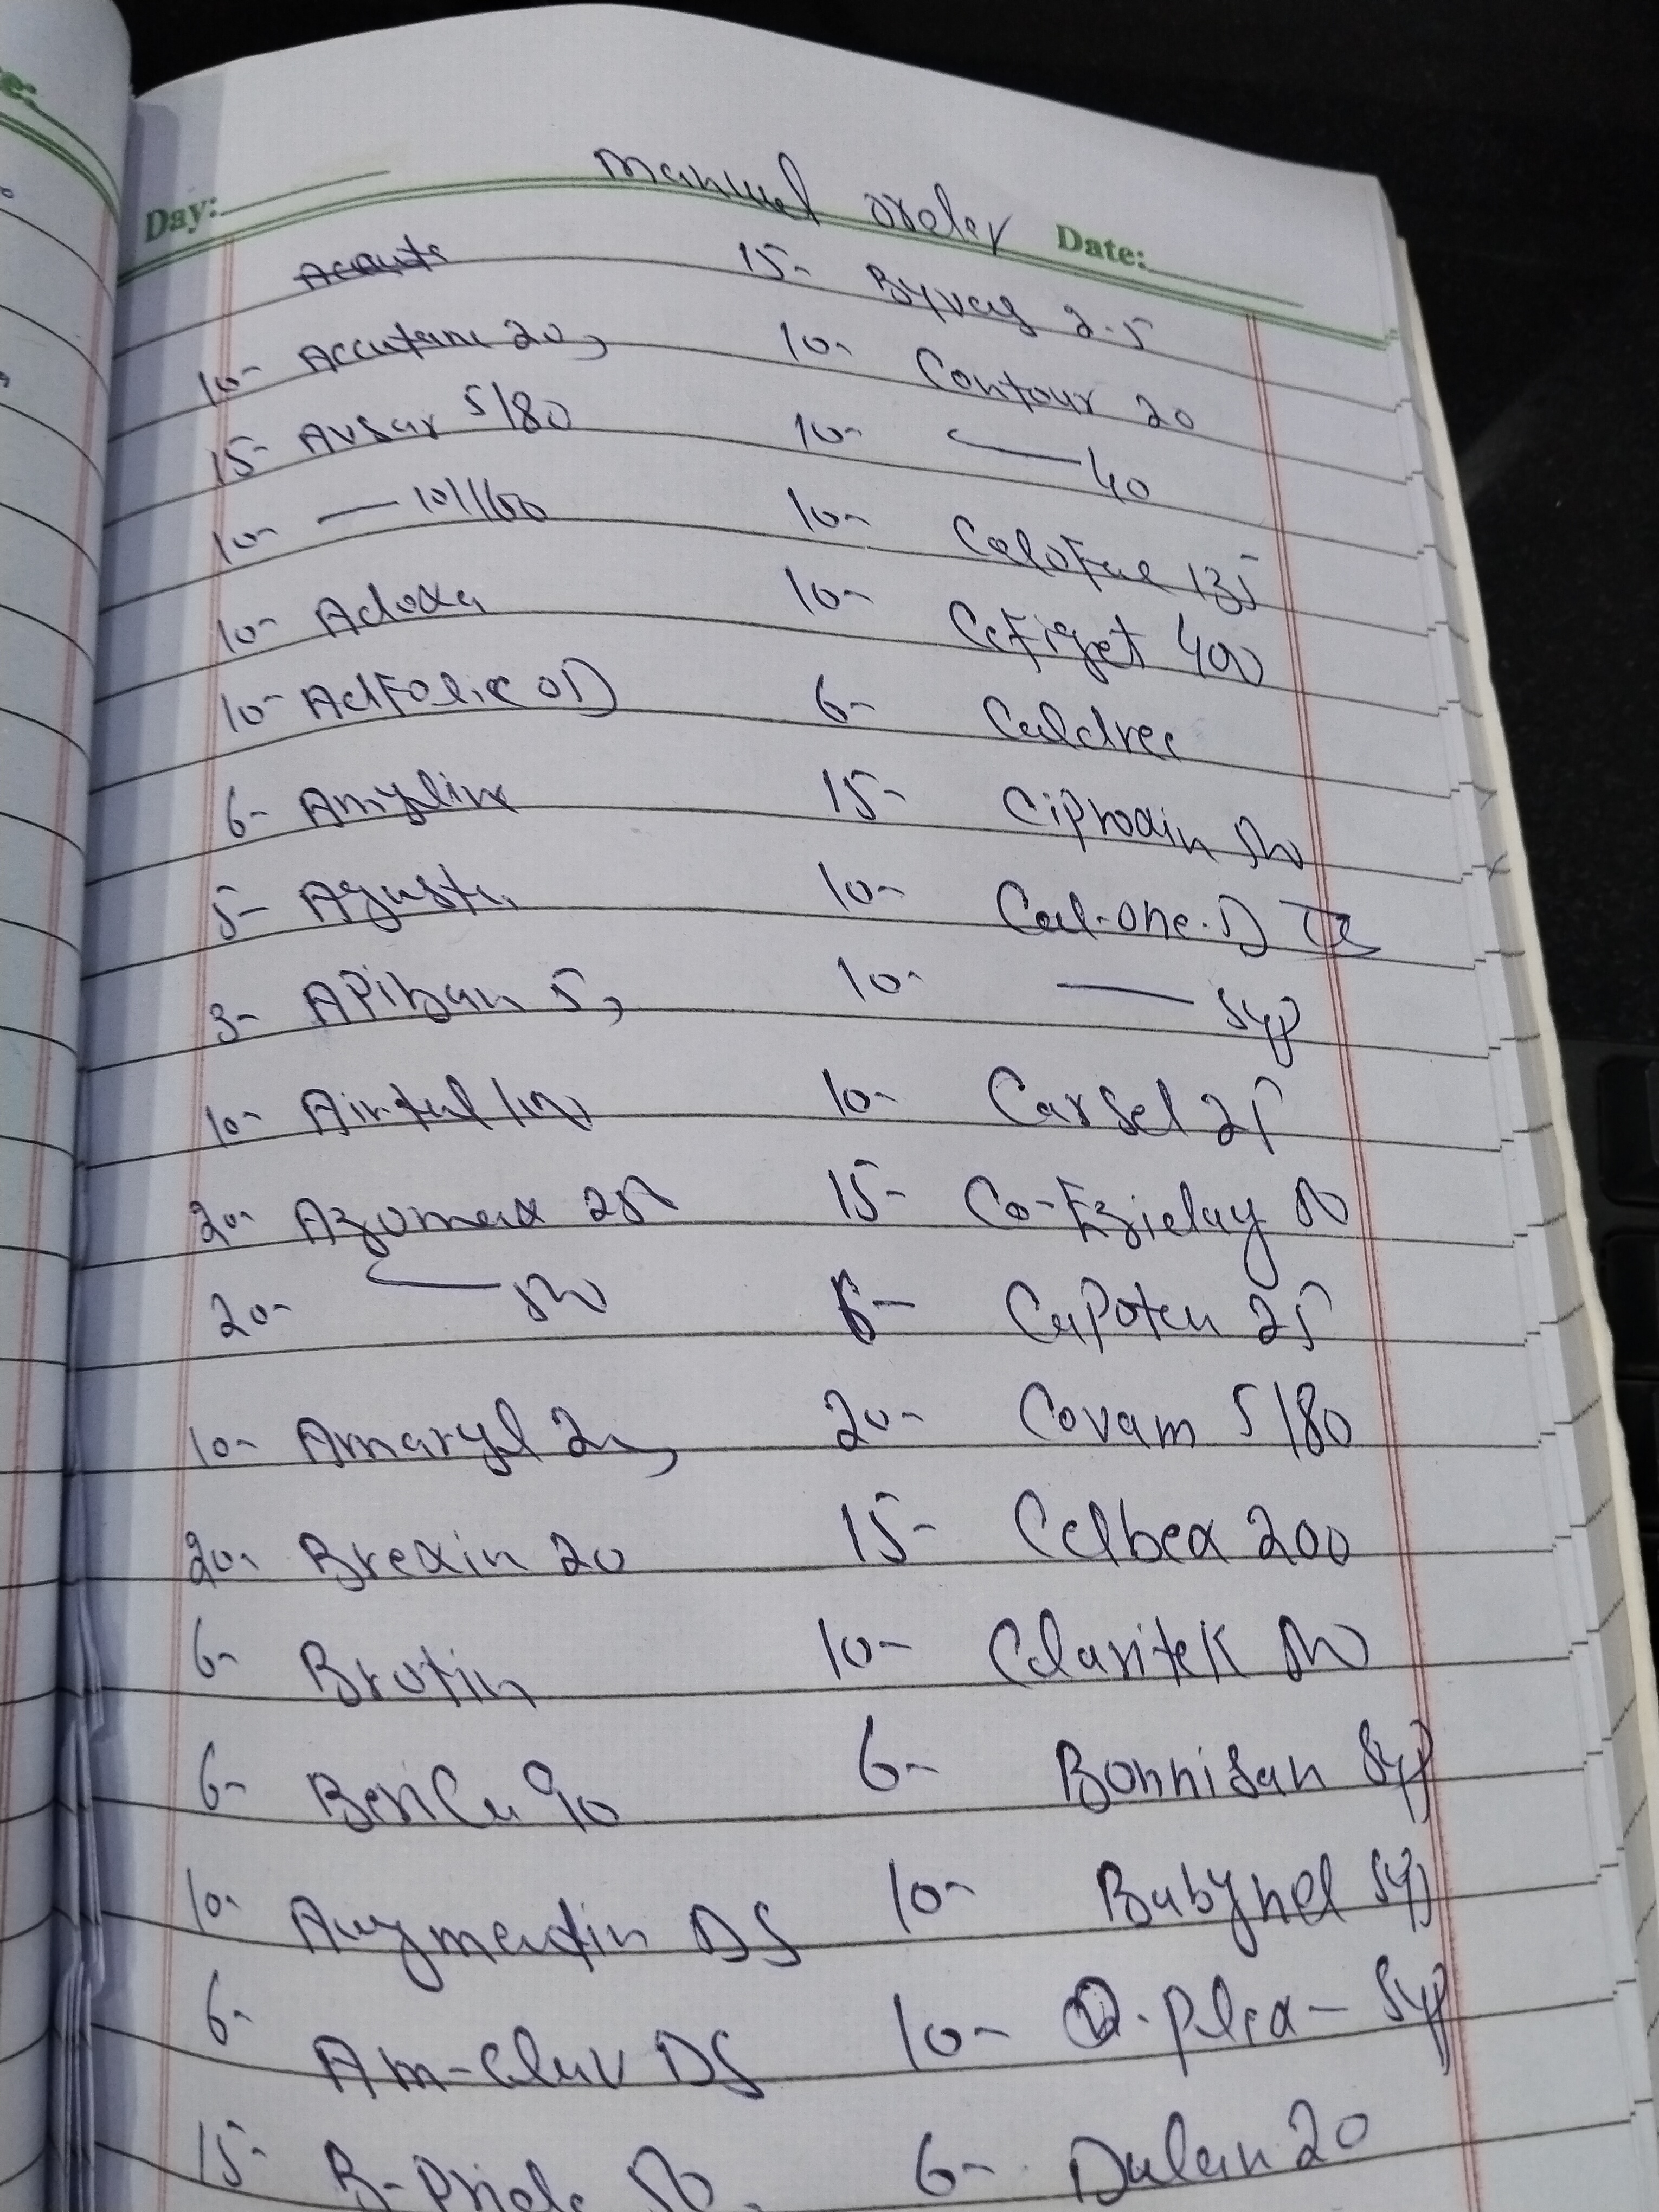 Manual order
Day: Date:
10- Accutane 20,
15- Avsar 5/80
10- — 10/160
10- Adoxa
10- AdFolic OD
6- Amyline
5-
3- Apiban 5,
10- Airtal 100
20- Azomax 250
20- — 500
10- Amaryl 2,
20- Brexin 20
6- Brotin
6- 90
10- Augmentin DS
6- Am-Clav DS
15-
15- Byvas 2.5
10- Contour 20
10- — 40
10- 135
10- Cefiget 400
6- Caldree
15- Ciproxin 500
10- Cal-One-D
10- — Syp
10- Carsel 25
15- Co-Eziday 50
6- Capoten 25
20- Covam 5/80
15- Celbex 200
10- Claritek 500
6- Bonnisan Syp
10- Babynol Syp
10- D-Plex - Syp
6- Dulan 20